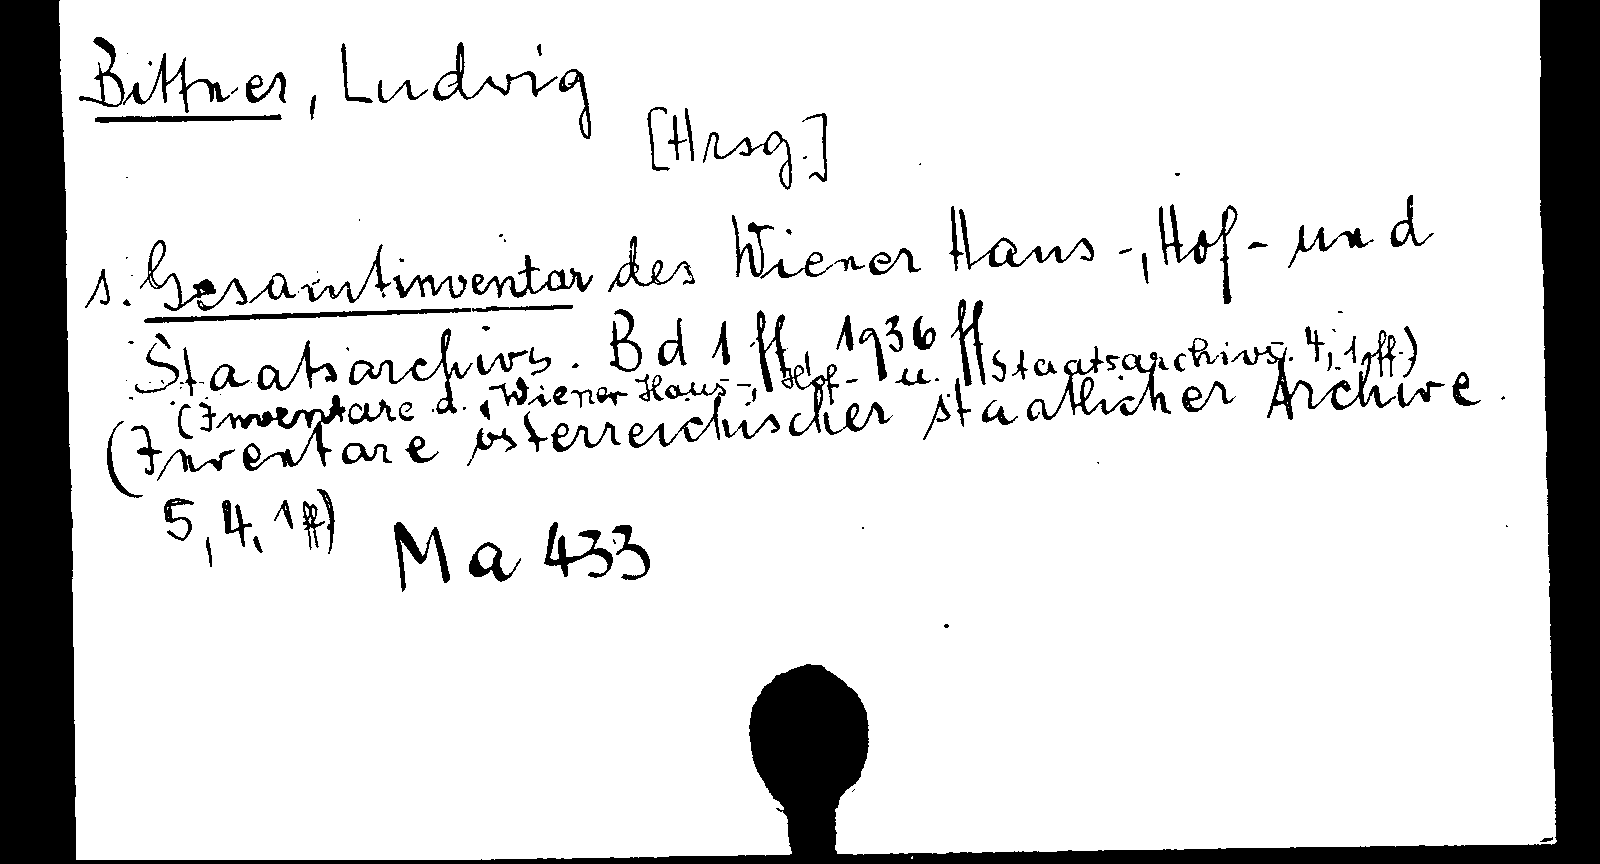 Bittner, Ludwig
[Hrsg.]
s. Gesamtinventar des Wiener Haus-, Hof- und
Staatsarchivs. Bd 1 ff, 1936 ff
(Inventare d. Wiener Haus-, Hof- u. Staatsarchivs. 4, 1 ff.)
(Inventare österreichischer staatlicher Archive.
5, 4, 1 ff)
Ma 433